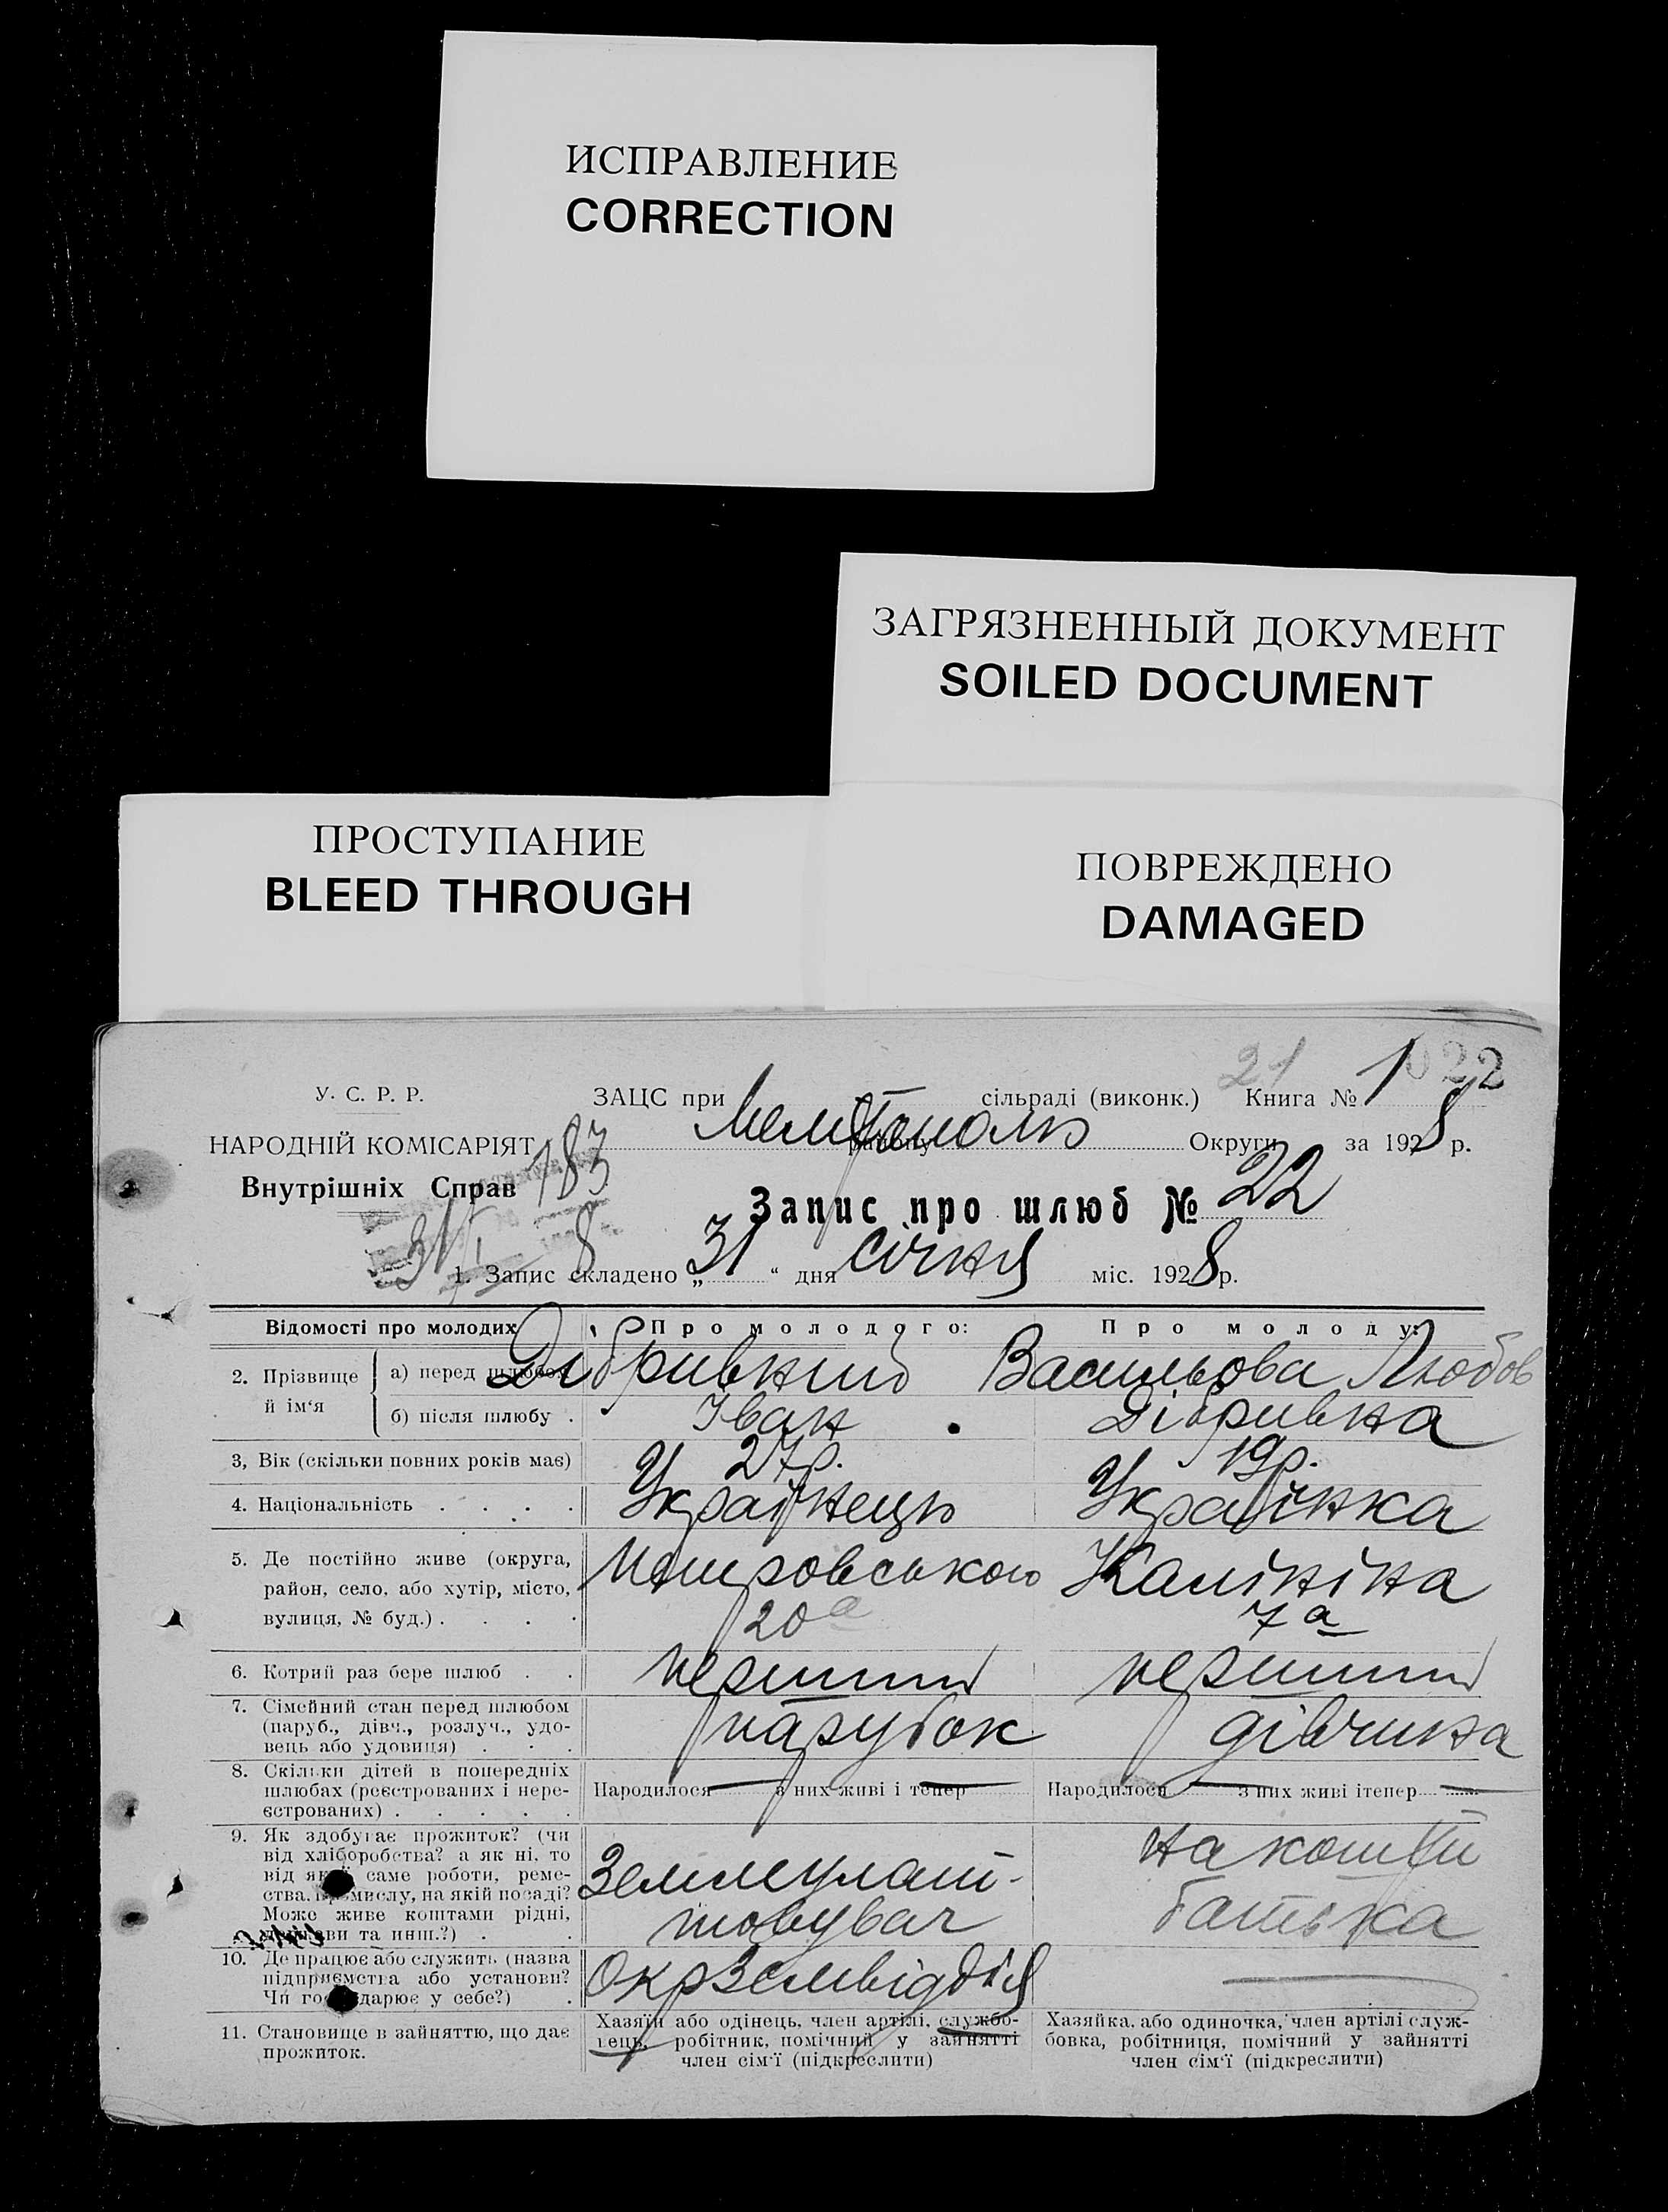 ИСПРАВЛЕНИЕ
CORRECTION
ЗАГРЯЗНЕННЫЙ ДОКУМЕНТ
SOILED DOCUMENT
ПРОСТУПАНИЕ
BLEED THROUGH
ПОВРЕЖДЕНО
DAMAGED
21 1 022
У. С. Р. Р. ЗАЦС при сільраді (виконк.) Книга №
НАРОДНІЙ КОМІСАРІЯТ району Округи за 1928 р.
Внутрішніх Справ 183
Запис про шлюб № 22
31/I 8
1. Запис складено „31“ дня січня міс. 1928 р.
Відомості про молодих Про молодого: Про молоду:
2. Прізвище й ім'я а) перед шлюбом Дібривний Васильова Любов
б) після шлюбу . Іван Дібривна
3, Вік (скільки повних років має) 27 р. 19 р.
4. Національність . . . . Українець Українка
5. Де постійно живе (округа, Калініна
район, село, або хутір, місто, 20а 7а
вулиця, № буд.) . . . .
6. Котрий раз бере шлюб . . перший перший
7. Сімейний стан перед шлюбом парубок дівчина
(паруб., дівч., розлуч., удо-
вець або удовиця) . . .
8. Скільки дітей в попередніх
шлюбах (реєстрованих і нере- Народилося з них живі і тепер Народилося з них живі і тепер
єстрованих) . . . . .
9. Як здобуває прожиток? (чи на кошти
від хліборобства? а як ні, то
від якої саме роботи, реме- Землеулаш-
ства, промислу, на якій посаді? батька
Може живе коштами рідні, товувач
держави та инш.?) . .
10. Де працює або служить (назва Окрземвідділ
підприємства або установи?
Чи господарює у себе?) .
11. Становище в зайняттю, що дає
прожиток.
Хазяїн або одінець, член артілі, службо-
вець, робітник, помічний у зайнятті
член сім'ї (підкреслити)
Хазяйка, або одиночка, член артілі служ-
бовка, робітниця, помічний у зайнятті
член сім'ї (підкреслити)